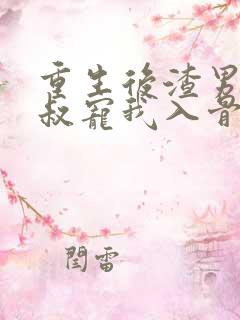 重生後渣男
叔寵我入骨
閆雷